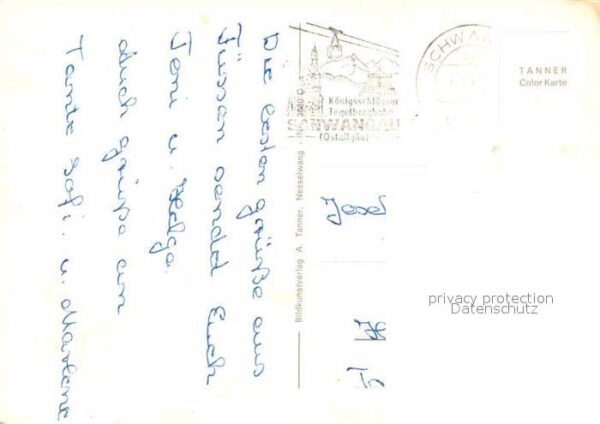 Die besten Grüße aus
Füssen sendet Euch
Toni u. Helga.
auch grüße an
Tante Sofi. u. Marlene
Bildkunstverlag A. Tanner, Nesselwang
Königsschlösser
Tegelbergbahn
SCHWANGAU
(Ostallgäu)
SCHWAN
TANNER
Color Karte
Josef
privacy protection
Datenschutz